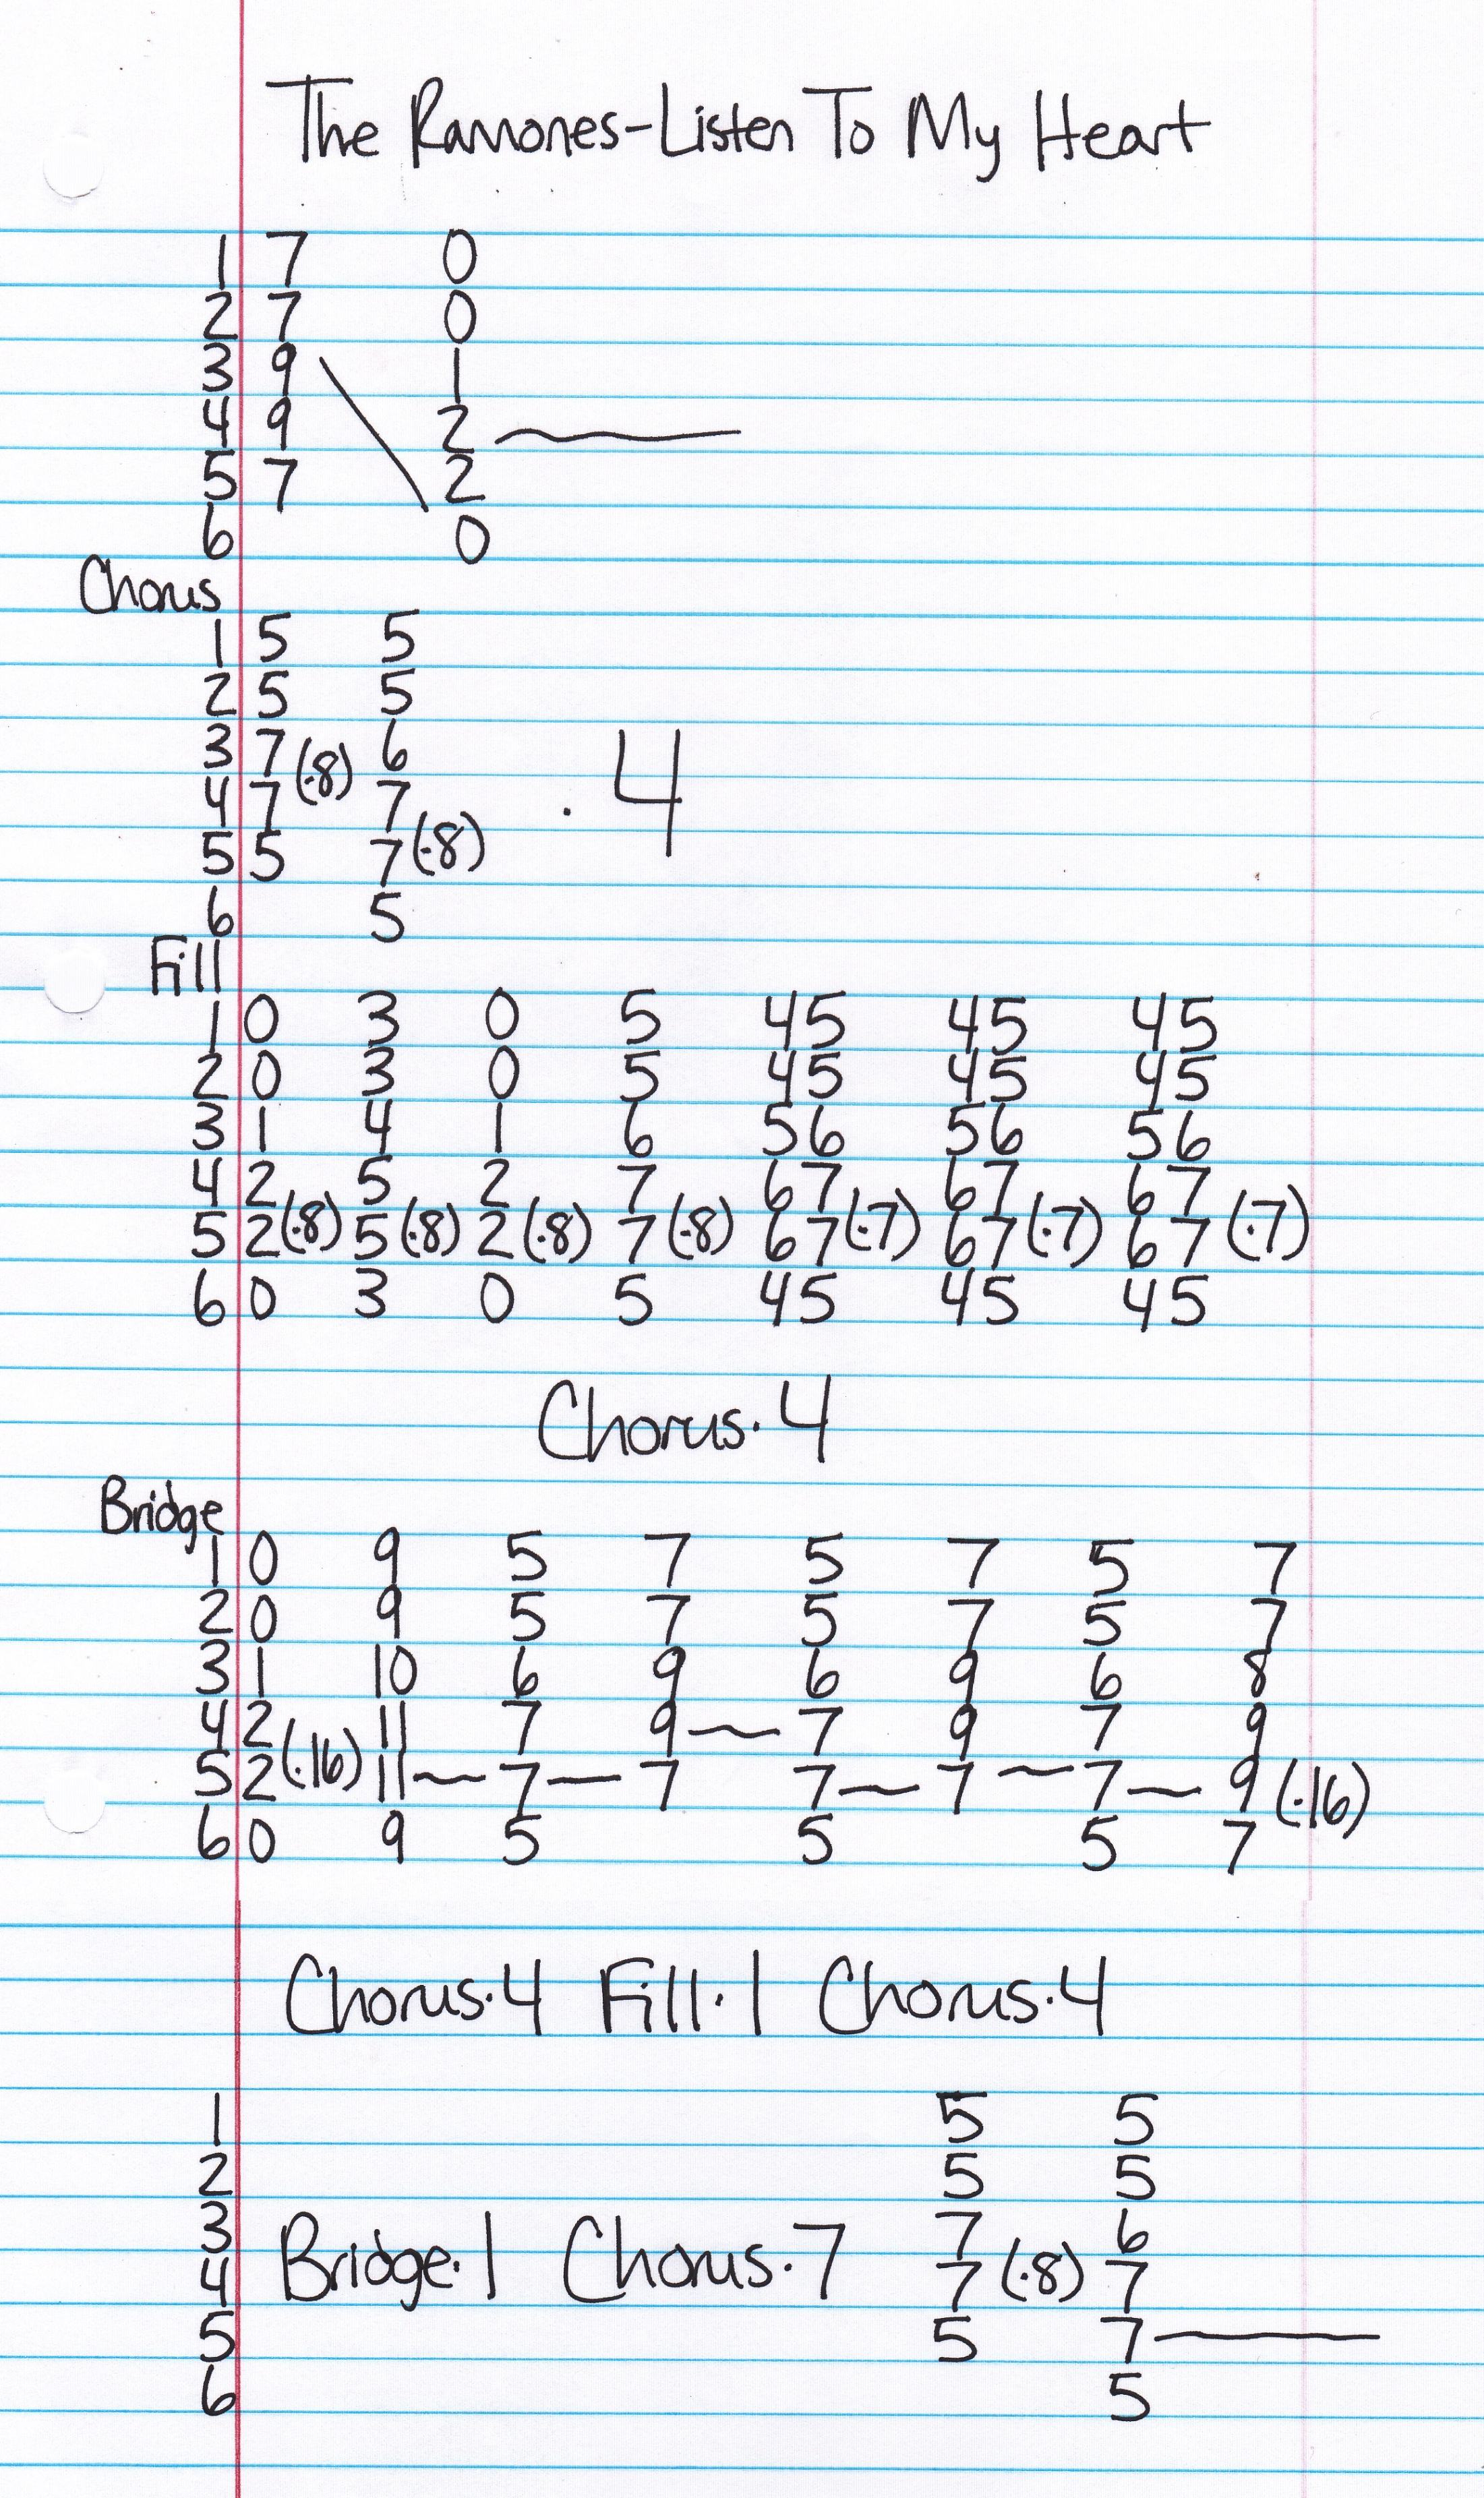 The Ramones-Listen To My Heart
1 7 0
2 7 0
3 9 1
4 9 2
5 7 2
6 0
Chorus
1 5 5
2 5 5
3 7 (·8) 6
4 7 7 · 4
5 5 7 (·8)
6 5
Fill
1 0 3 0 5 45 45 45
2 0 3 0 5 45 45 45
3 1 4 1 6 56 56 56
4 2 5 2 7 67 67 67
5 2 (·8) 5 (·8) 2 (·8) 7 (·8) 67 (·7) 67 (·7) 67 (·7)
6 0 3 0 5 45 45 45
Chorus·4
Bridge
1 0 9 5 7 5 7 5 7
2 0 9 5 7 5 7 5 7
3 1 10 6 9 6 9 6 8
4 2 11 7 9 ~ 7 9 7 9
5 2 (·16) 11 ~ 7 — 7 7 ~ 7 ~ 7 ~ 9 (·16)
6 0 9 5 5 5 7
Chorus·4 Fill·1 Chorus·4
1 5 5
2 5 5
3 7 6
4 Bridge·1 Chorus·7 7 (·8) 7
5 5 7
6 5